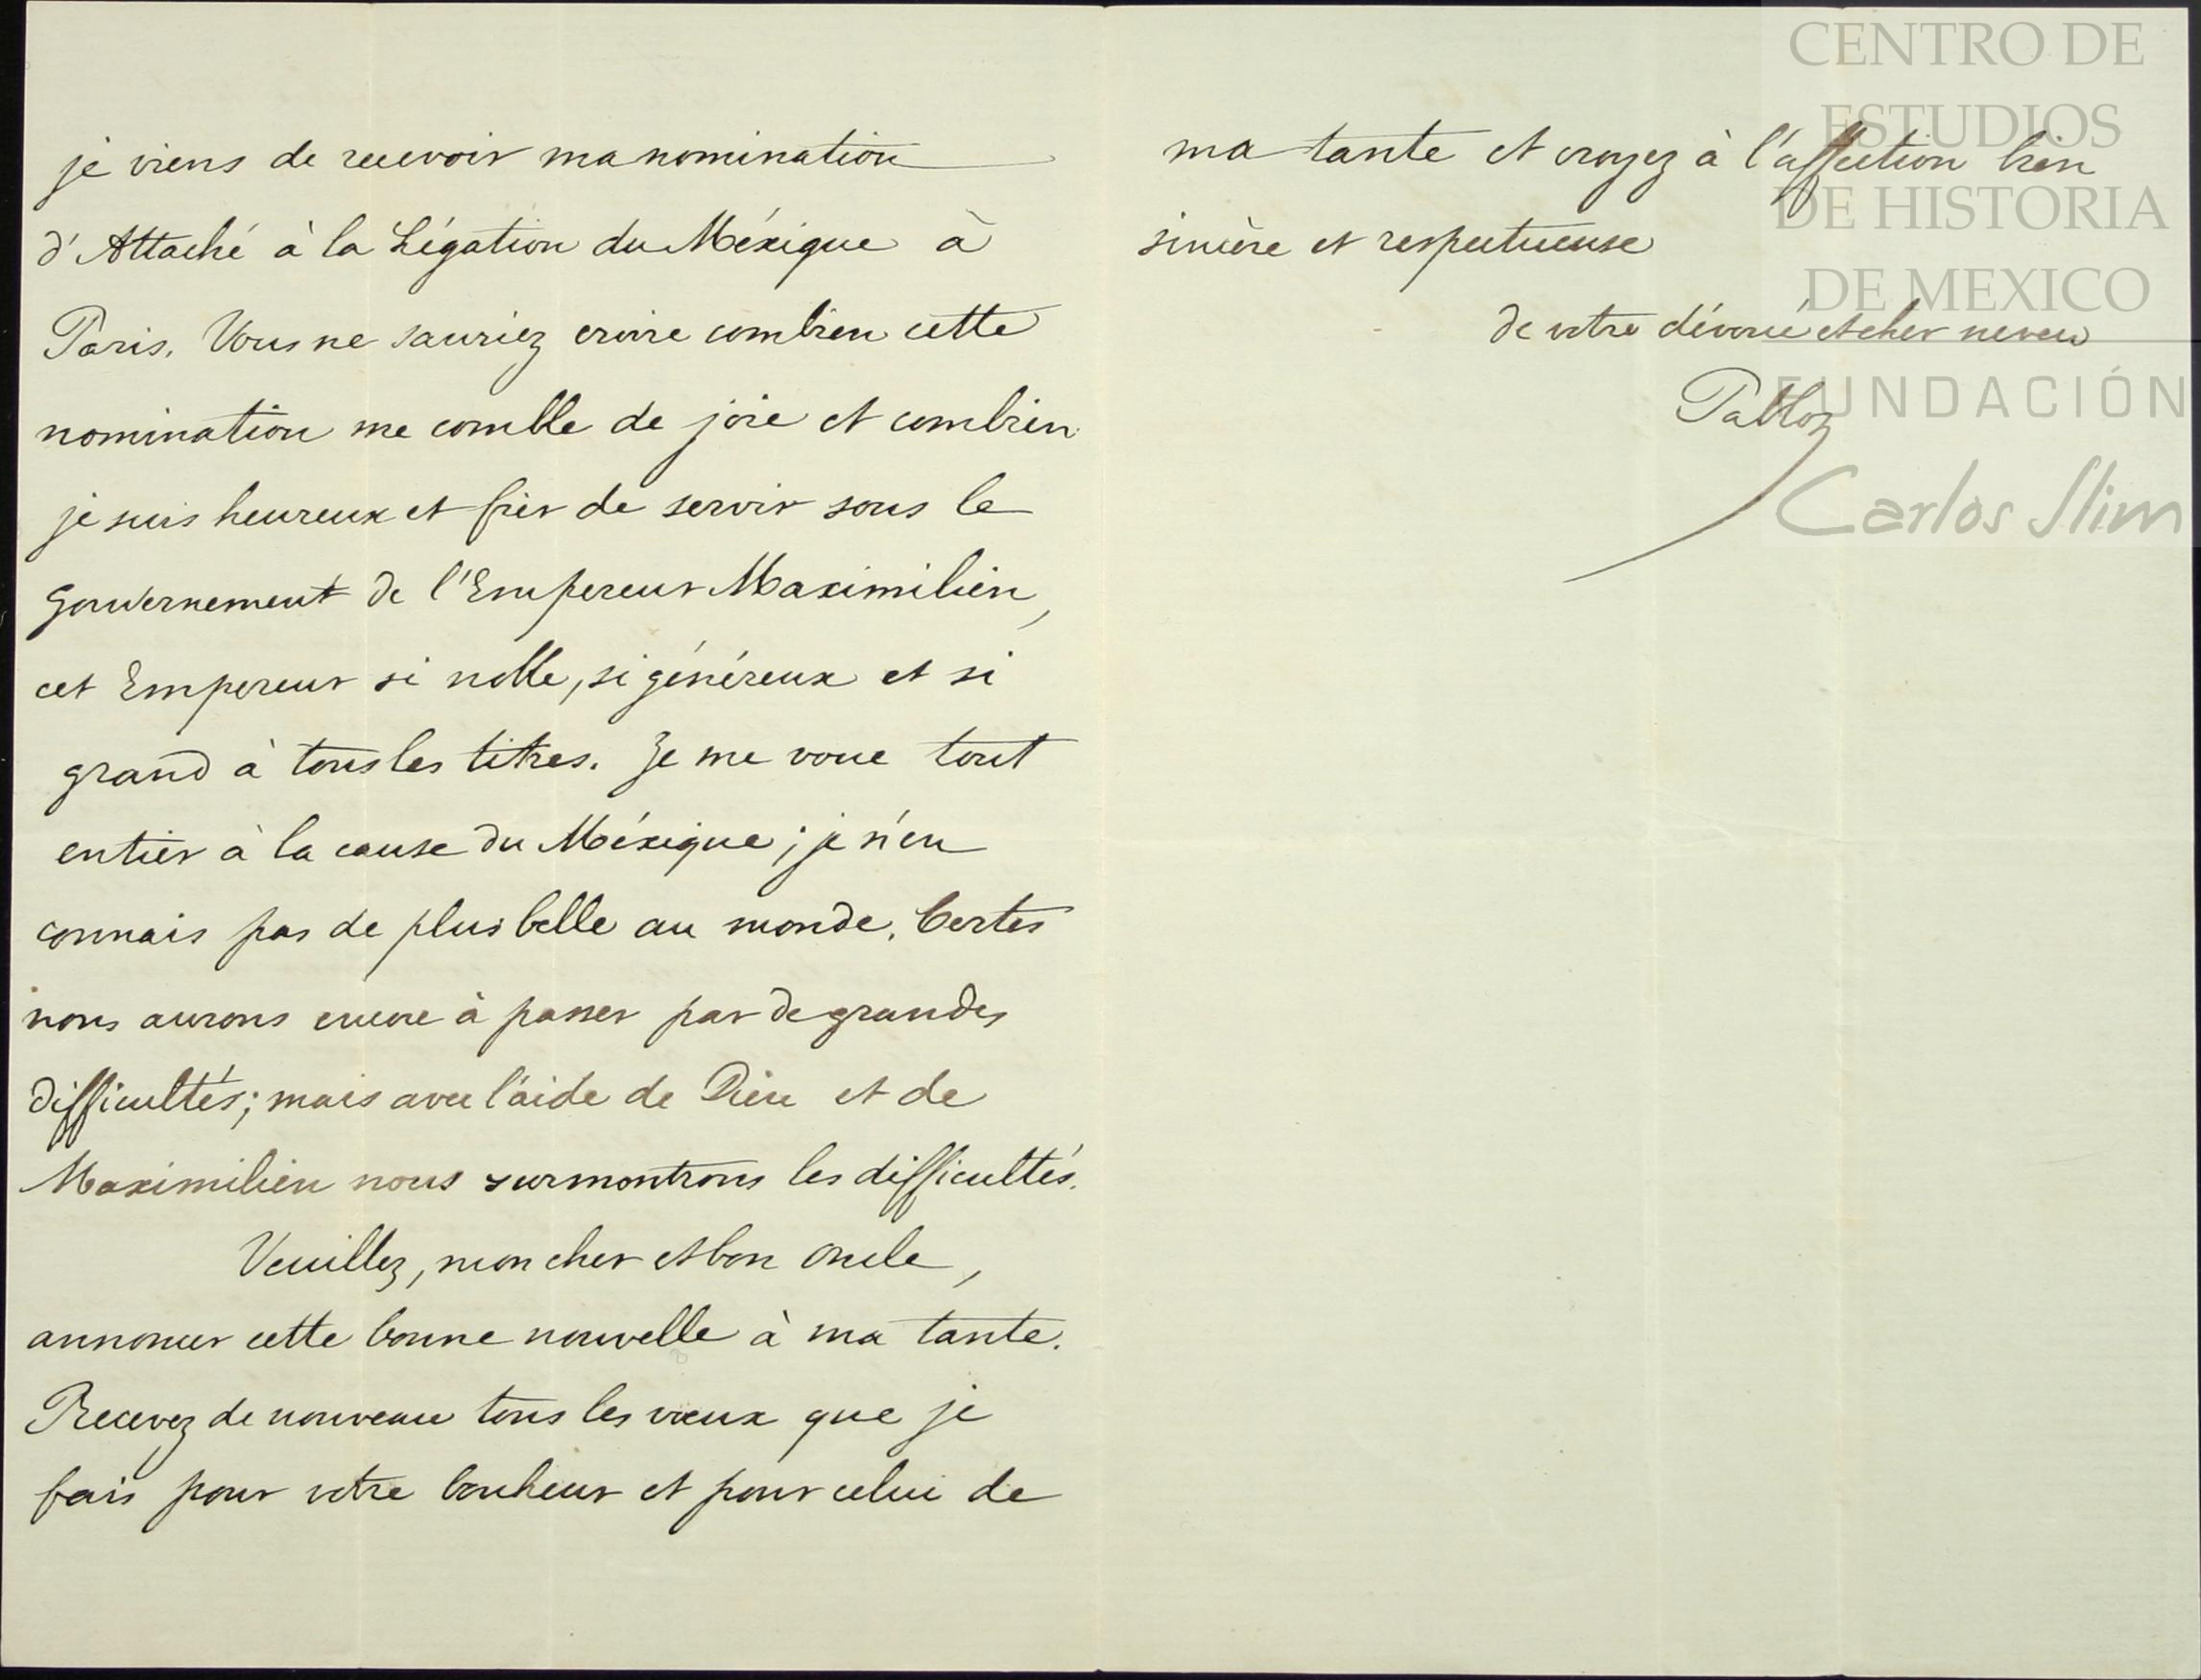 je viens de recevoir ma nomination
d'Attaché à la Légation du Méxique à
Paris. Vous ne sauriez croire combien cette
nomination me comble de joie et combien
je suis heureux et fier de servir sous le
Gouvernement de l'Empereur Maximilien,
cet Empereur si noble, si généreux et si
grand à tous les titres. Je me voue tout
entier à la cause du Méxique; je n'en
connais pas de plus belle au monde. Certes
nous aurons encore à passer par de grandes
difficultés; mais avec l'aide de Dieu et de
Maximilien nous surmontrons les difficultés.
Veuillez, mon cher et bon oncle,
annoncer cette bonne nouvelle à ma tante.
Recevez de nouveau tous les vœux que je
fais pour votre bonheur et pour celui de
ma tante et croyez à l'affection bien
sincère et respectueuse
de votre dévoué et cher neveu
Pablo
CENTRO DE
ESTUDIOS
DE HISTORIA
DE MEXICO
FUNDACIÓN
Carlos Slim